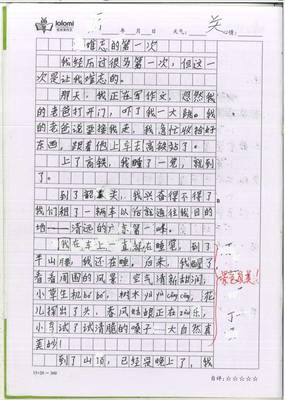 lolomi
年 月 日 天气: 心情:
难忘的第一次
我经历过很多第一次,但这一
次是让我难忘的。
那天,我正在写作文,忽然我
的老爸打开门,吓了我一大跳。我
的老爸说要接我走,我急忙收拾好
东西,跟着他上车去高铁站了。
上了高铁,我睡了一觉,就到
了。
到了韶关,我兴奋得不得了
我们租了一辆车以后就通往我目的
地——清远的广东第一峰。
我在车上一直都在睡觉,到了
半山腰,我还在睡。后来,我醒了
看看周围的风景:空气清新甜润,
小草生机bó bó,树木
儿探出了头,春风姑娘正在
小鸟试了试清脆的嗓子……大自然真
美妙!
到了山顶,已经是晚上了,我
15×20=300
自评:☆☆☆☆☆